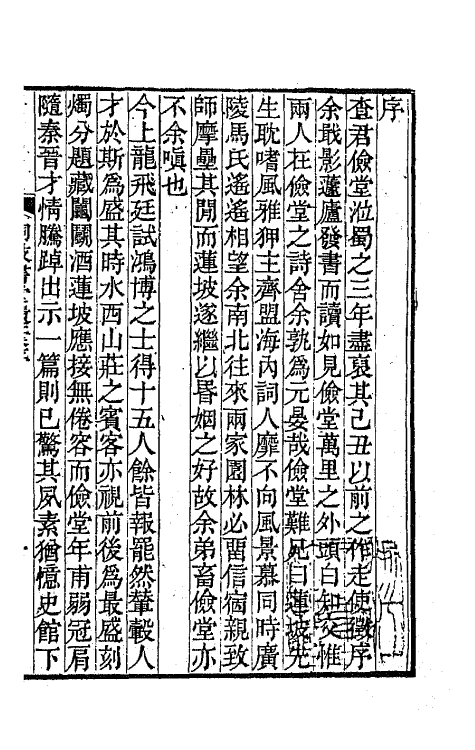 序
查君儉堂涖蜀之三年盡裒其己丑以前之作走使徵序
余戢影蘧廬發書而讀如見儉堂萬里之外頭白知交惟
兩人在儉堂之詩舍余孰爲元晏哉儉堂難兄曰蓮坡先
生耽嗜風雅狎主齊盟海內詞人靡不向風景慕同時廣
陵馬氏遙遙相望余南北往來兩家園林必畱信宿親致
師摩壘其閒而蓮坡遂繼以昬姻之好故余弟畜儉堂亦
不余嗔也
今上龍飛廷試鴻博之士得十五人餘皆報罷然輦轂人
才於斯爲盛其時水西山莊之賓客亦視前後爲最盛刻
燭分題藏鬮鬬酒蓮坡應接無倦容而儉堂年甫弱冠肩
隨秦晉才情騰踔出示一篇則已驚其夙素猶憶史館下